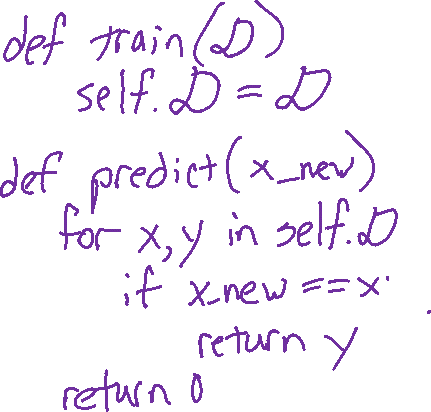 def train(D)
self.D = D
def predict(x_new)
for x,y in self.D
if x_new == x
return y
return 0